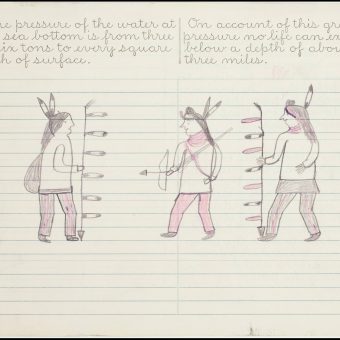 pressure of the water at
sea bottom is from three
six tons to every square
of surface.
On account of this
pressure no life can
below a depth of
three miles.